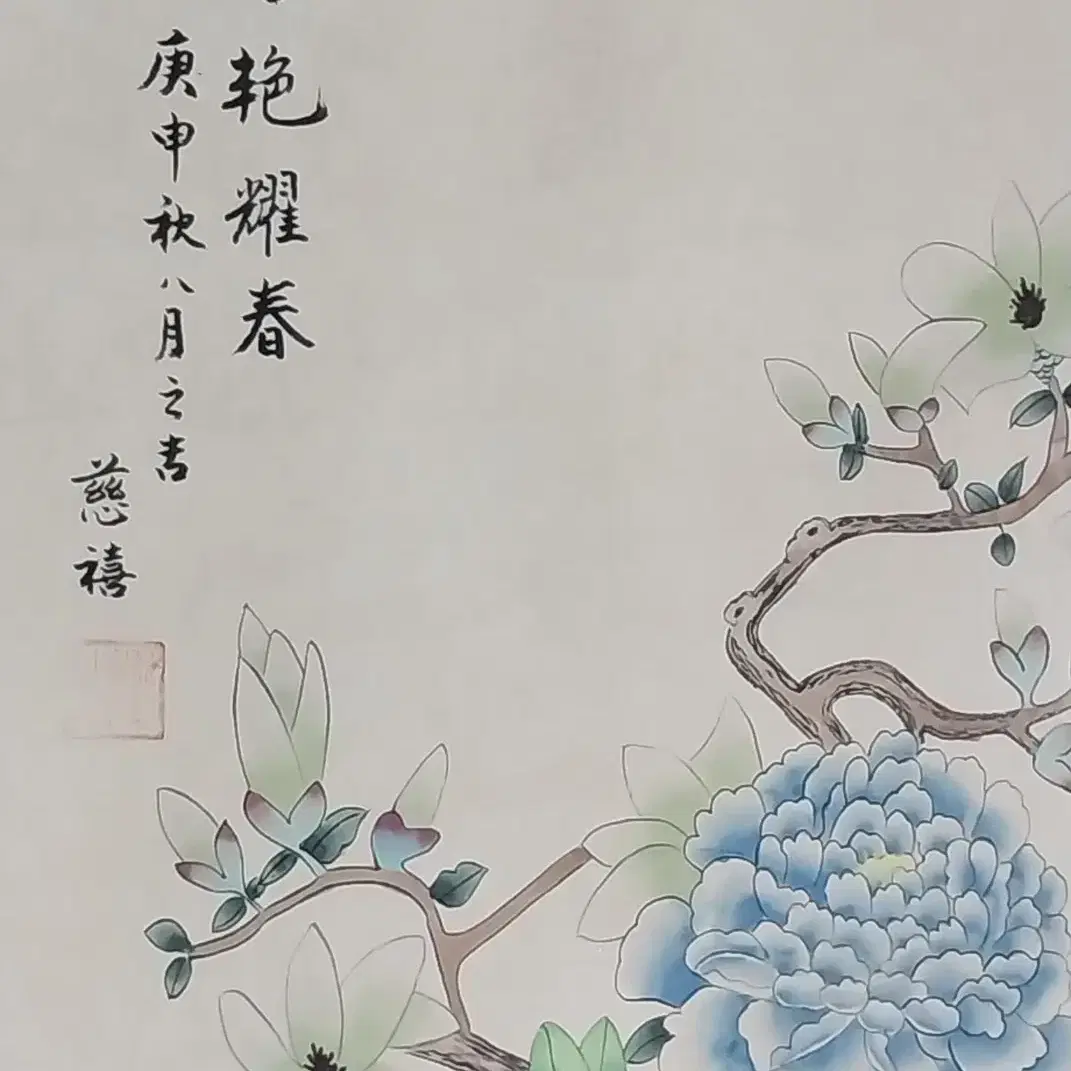 艳耀春
庚申秋八月之吉
慈禧